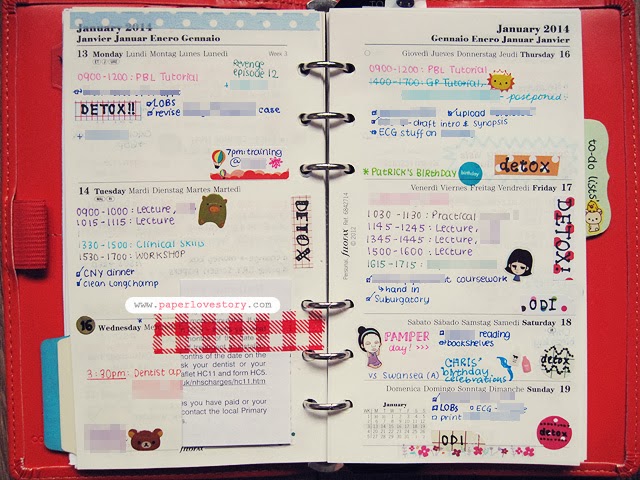 January 2014
Janvier Januar Enero Gennaio
13 Monday Lundi Montag Lunes Lunedi
Week 3
0900-1200: PBL Tutorial
Revenge
episode 12
DETOX!!
LOBS
revise
case
7pm: training
@
14 Tuesday Mardi Dienstag Martes Martedi
0900-1000: Lecture,
1015-1115: Lecture,
1330-1500: Clinical skills
1530-1700: WORKSHOP
DETOX
CNY dinner
clean Longchamp
www.paperlovestory.com
16 Wednesday
months of the date on the
sk your dentist or your
aflet HC11 and form HC5.
.uk/nhscharges/hc11.htm
3:30pm: Dentist ap
s you have paid or your
contact the local Primary
filofax
January 2014
Gennaio Enero Januar Janvier
Giovedi Jueves Donnerstag Jeudi Thursday 16
0900-1200: PBL Tutorial
1400-1700: GP Tutorial
postponed
upload
draft intro & synopsis
ECG stuff on
* Patrick's Birthday
birthday
detox
Venerdi Viernes Freitag Vendredi Friday 17
1030-1130: Practical
1145-1245: Lecture,
1345-1445: Lecture,
1500-1600: Lecture
1615-1715:
DETOX!
coursework
hand in
Suburgatory
ODI
Personal filofax Ref. 6842714
© 2012
to-do lists
Sabato Sábado Samstag Samedi Saturday 18
PAMPER
day! >>>
reading
bookshelves
vs Swansea (A)
CHRIS'
birthday
celebrations
detox
Domenica Domingo Sonntag Dimanche Sunday 19
January
LOBS
ECG
print
ODI
detox